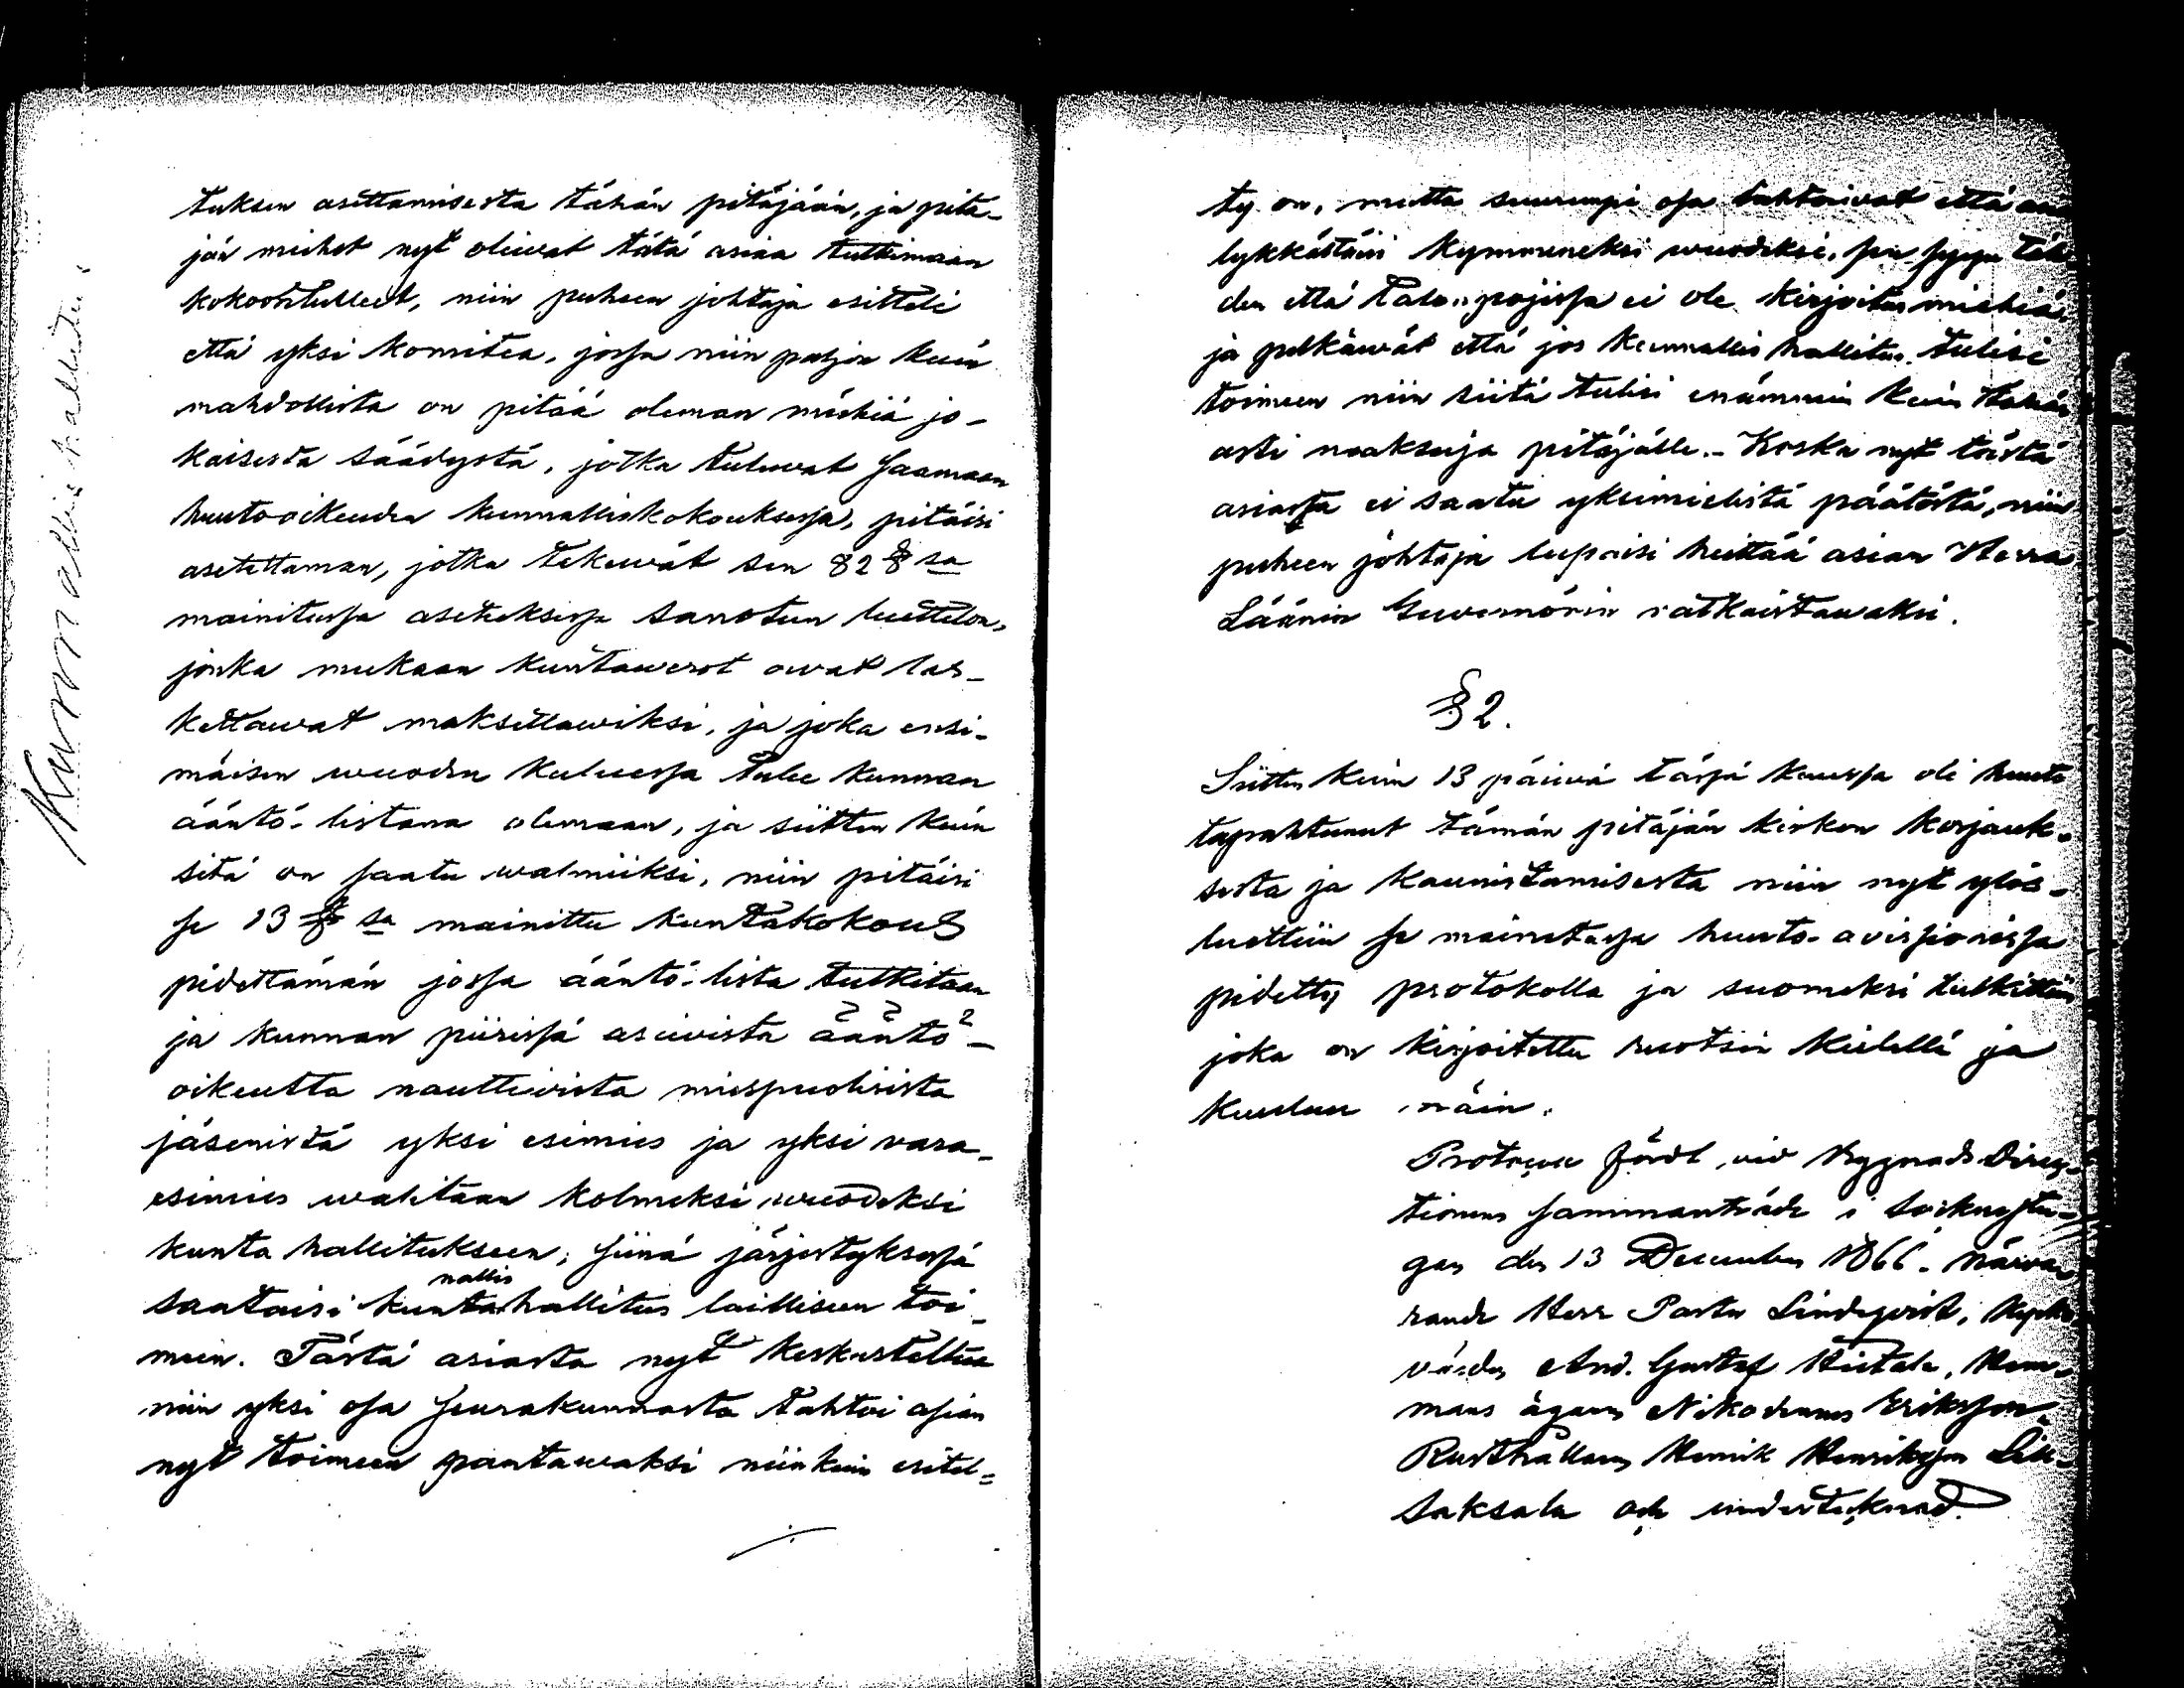 Kunnallis hallitus.
tuksen asettamisesta tähän pitäjään, ja pitä-
jän miehet nyt oliwat tätä asiaa tutkimaan
kokoontulleet, niin puheen johtaja esitteli
että yksi komitea, jossa niin paljon kuin
mahdollista on pitää oleman miehiä jo-
kaisesta säädystä, jotka tulewat saamaan
huutooikeuden kunnalliskokouksessa, pitäisi
asetettaman, jotka tekewät sen 82 § sa
mainitussa asetuksessa sanotun luettelon,
jonka mukaan kuntawerot owat las-
kettawat maksettawiksi, ja joka ensi-
mäisen wuoden kuluessa tulee kunnan
ääntö-listana olemaan, ja siitten kuin
sitä on saatu walmiiksi, niin pitäisi
se 13 § sa mainittu kuntakokous
pidettämän jossa ääntö-lista tutkitaan
ja kunnan piirissä asuvista ääntö-
oikeutta nauttivista miespuolisista
jäsenistä yksi esimies ja yksi vara-
esimies walitaan kolmeksi wuodeksi
kunta hallitukseen; siinä järjestyksessä
nallis
saataisi kunta hallitus lailliseen toi-
meen. Tästä asiasta nyt keskusteltua
niin yksi osa seurakunnasta tahtoi asian
nyt toimeen pantawaksi niinkuin esitel-
ty on, mutta suurempi osa tahtoiwat että
lykkättäisi kymmeneksi wuodeksi, sen syyn täh-
den että Talonpojissa ei ole kirjoitusmiehiä,
ja pelkäwät että jos kunnallis hallitus tulisi
toimeen niin siitä tulisi enämmin kuin tähän
asti maaksuja pitäjälle. - Koska nyt tästä
asiasta ei saatu yksimielistä päätöstä, niin
puheen johtaja lupaisi heittää asian Herra
Läänin Guvernörin ratkaistawaksi.
§ 2.
Siitten kuin 13 päiwä tässä kuussa oli huuto
tapahtunut tämän pitäjän kirkon korjauk-
sesta ja kaunistamisesta niin nyt ylös-
luettiin se mainitussa huuto-avisionissa
pidetty protokolla ja suomeksi tulkittiin
joka on kirjoitettu ruotsin kielellä ja
kuuluu näin.
fördt vid Byggnads Direc-
tionens sammanträde i Sockenstu-
gan den 13 December 1866. Närva-
rande Herr Pastor Lindqvist, Kyrko-
värden And. Gustaf Hietala, Hem-
mans ägaren Nikodemus Eriksson
Rusthållaren Henrik Henriksson
Saksala och undertecknad.